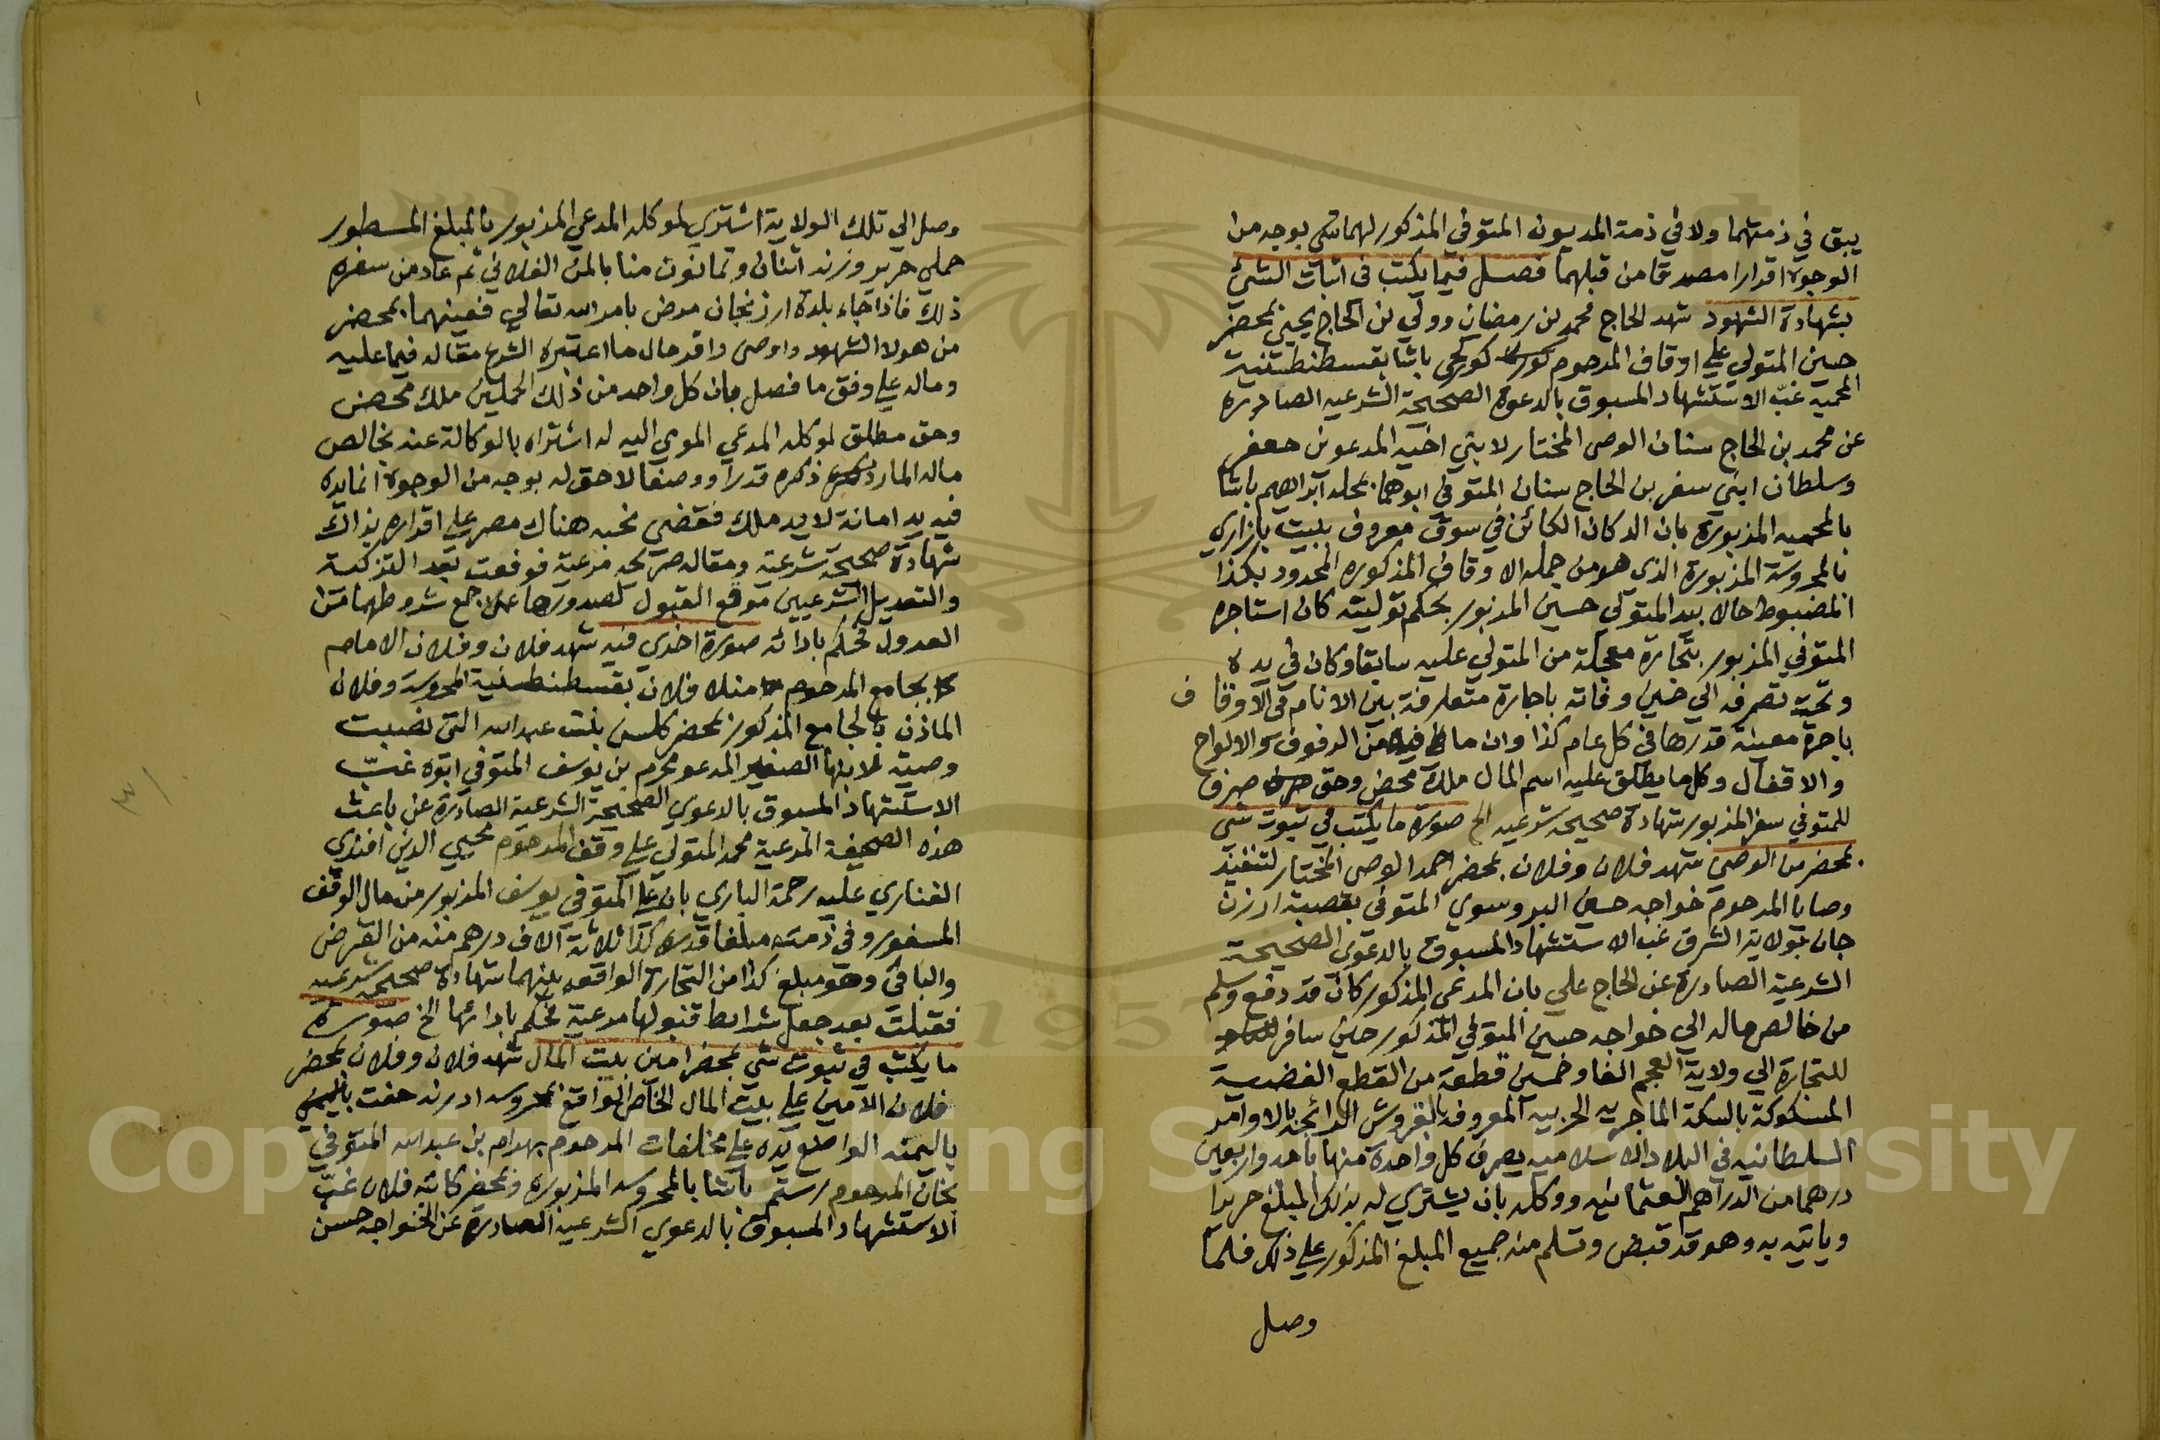 يبق في ذمتهما ولا في ذمة المديون المتوفي المذكور لهما شي بوجه من
الوجوه اقرارا مصدقا من قبلهما فصل فيما يكتب في اثبات الشئ
بشهادة الشهود شهد الحاج محمد بن رمضان وولي بن الحاج يحيي بمحضر
حسين المتولي علي اوقاف المرحوم كوركجي باشا بقسطنطنية
المحميه غبّ الاستشهاد المسبوق بالدعوة الصحيحة الشرعيه الصادره
عن محمد بن الحاج سنان الوصي المختار لابني اخيه المدعوين جعفر
وسلطان ابني سفر بن الحاج سنان المتوفي ابوهما بمحله ابراهيم باشا
بالمحميه المزبورة بان الدكان الكائن في سوق معروف ببيت بازاري
بالمحروسة المزبورة الذي هو من جمله الاوقاف المذكوره المحدود بكذا
المضبوط حالا بيد المتولي حسين المزبور بحكم توليته كان استاجره
المتوفي المزبور باجارة معجلة من المتولي عليه سابقا وكان في يده
وتحت تصرفه الي حين وفاته باجارة متعارفة بين الانام في الاوقاف
باجرة معينة قدرها في كل عام كذا وان ما فيه من الدفوف والالواح
والاقفال وكل ما يطلق عليه اسم المال ملك محض وحق صرف
للمتوفي سفر المزبور شهادة صحيحه شرعيه الخ صورة ما يكتب في ثبوت شي
بمحضر من الوصي شهد فلان وفلان بمحضر احمد الوصي المختار لتنفيذ
وصايا المرحوم خواجه حسين البروسوي المتوفي بقصبة ارزن
جان بولاية الشرق غب الاستشهاد المسبوق بالدعوي الصحيحة
الشرعية الصادرة عن الحاج علي بان المدعي المذكور كان قد دفع وسلم
من خالص ماله الي خواجه حسين المتوفي المذكور حين سافر
للتجارة الي ولاية العجم الفا وخمسين قطعة من القطع الفضية
المسكوكة بالسكة الماجريه الحربيه المعروفه بالقروش الرائجة بالاوامر
السلطانيه في البلاد الاسلاميه يصرف كل واحدة منها باحد واربعين
درهما من الدراهم العثمانيه ووكله بان يشتري له بذلك المبلغ حريرا
وياتيه به وهو قد قبض وتسلم منه جميع المبلغ المذكور علي ذلك فلما
وصل
وصل الي تلك الولاية اشتري لموكله المدعي المزبور بالمبلغ المسطور
حملي حرير وزنه اثنان وثمانون منا بالمن الفلاني ثم عاد من سفره
ذلك فاذا جاء بلدة ارزنجان مرض بامر الله تعالي فعينهما بمحضر
من هولا الشهود واوصي واقر حال ما اعتبره الشرع مقاله فيما عليه
وماله علي وفق ما فصل بان كل واحد من ذلك الحملين ملك محض
وحق مطلق لموكله المدعي المومي اليه له اشتراه بالوكالة عنه بخالص
ماله المار ذكره قدرا ووصفا لا حق له بوجه من الوجوه انما يده
فيه يد امانة لا يد ملك فقضي نحبه هناك مصر علي اقراره بذاك
شهادة صحيحة شرعية ومقاله صريحه مرعية فوقعت بعد التزكية
والتعديل الشرعيين موقع القبول لصدورها جمع شروطهما من
العدول فحكم بادائه صورة اخري فيه شهد فلان وفلان الامام
بجامع المرحوم منلا فلان بقسطنطنية المحروسة وفلان
الماذن بالجامع المذكور بمحضر كلسن بنت عبد الله التي نصبت
وصية لابنها الصغير المدعو محرم بن يوسف المتوفي ابوه غبّ
الاستشهاد المسبوق بالدعوي الصحيحة الشرعية الصادرة عن باعث
هذه الصحيفة المرعية محمد المتولي علي وقف المرحوم محيي الدين افندي
الفناري عليه رحمة الباري بان علي المتوفي يوسف المزبور من مال الوقف
المسفور وفي ذمته مبلغا قدره كذا ثلاثة آلاف درهم منه من القرض
والباقي وهو مبلغ كذا من التجارة الواقعه بينهما شهادة صحيحه شرعيه
فقبلت بعد جعل شرايط قبولها مرعية فحكم بادائها الخ صورة
ما يكتب في ثبوت شي بمحضر امين بيت المال شهد فلان وفلان بمحضر
فلان الامين علي بيت المال الخاص الواقع بمحروسه ادرنه حفت
باليمنه الواضع يده علي مخلفات المرحوم بهرام بن عبد الله المتوفي
بخان المرحوم رستم باشا بالمحروسه المزبورة وبمحضر كاتبه فلان غبّ
الاستشهاد المسبوق بالدعوي الشرعية الصادرة عن الخواجه حسن
Copyright © King Saud University
1957